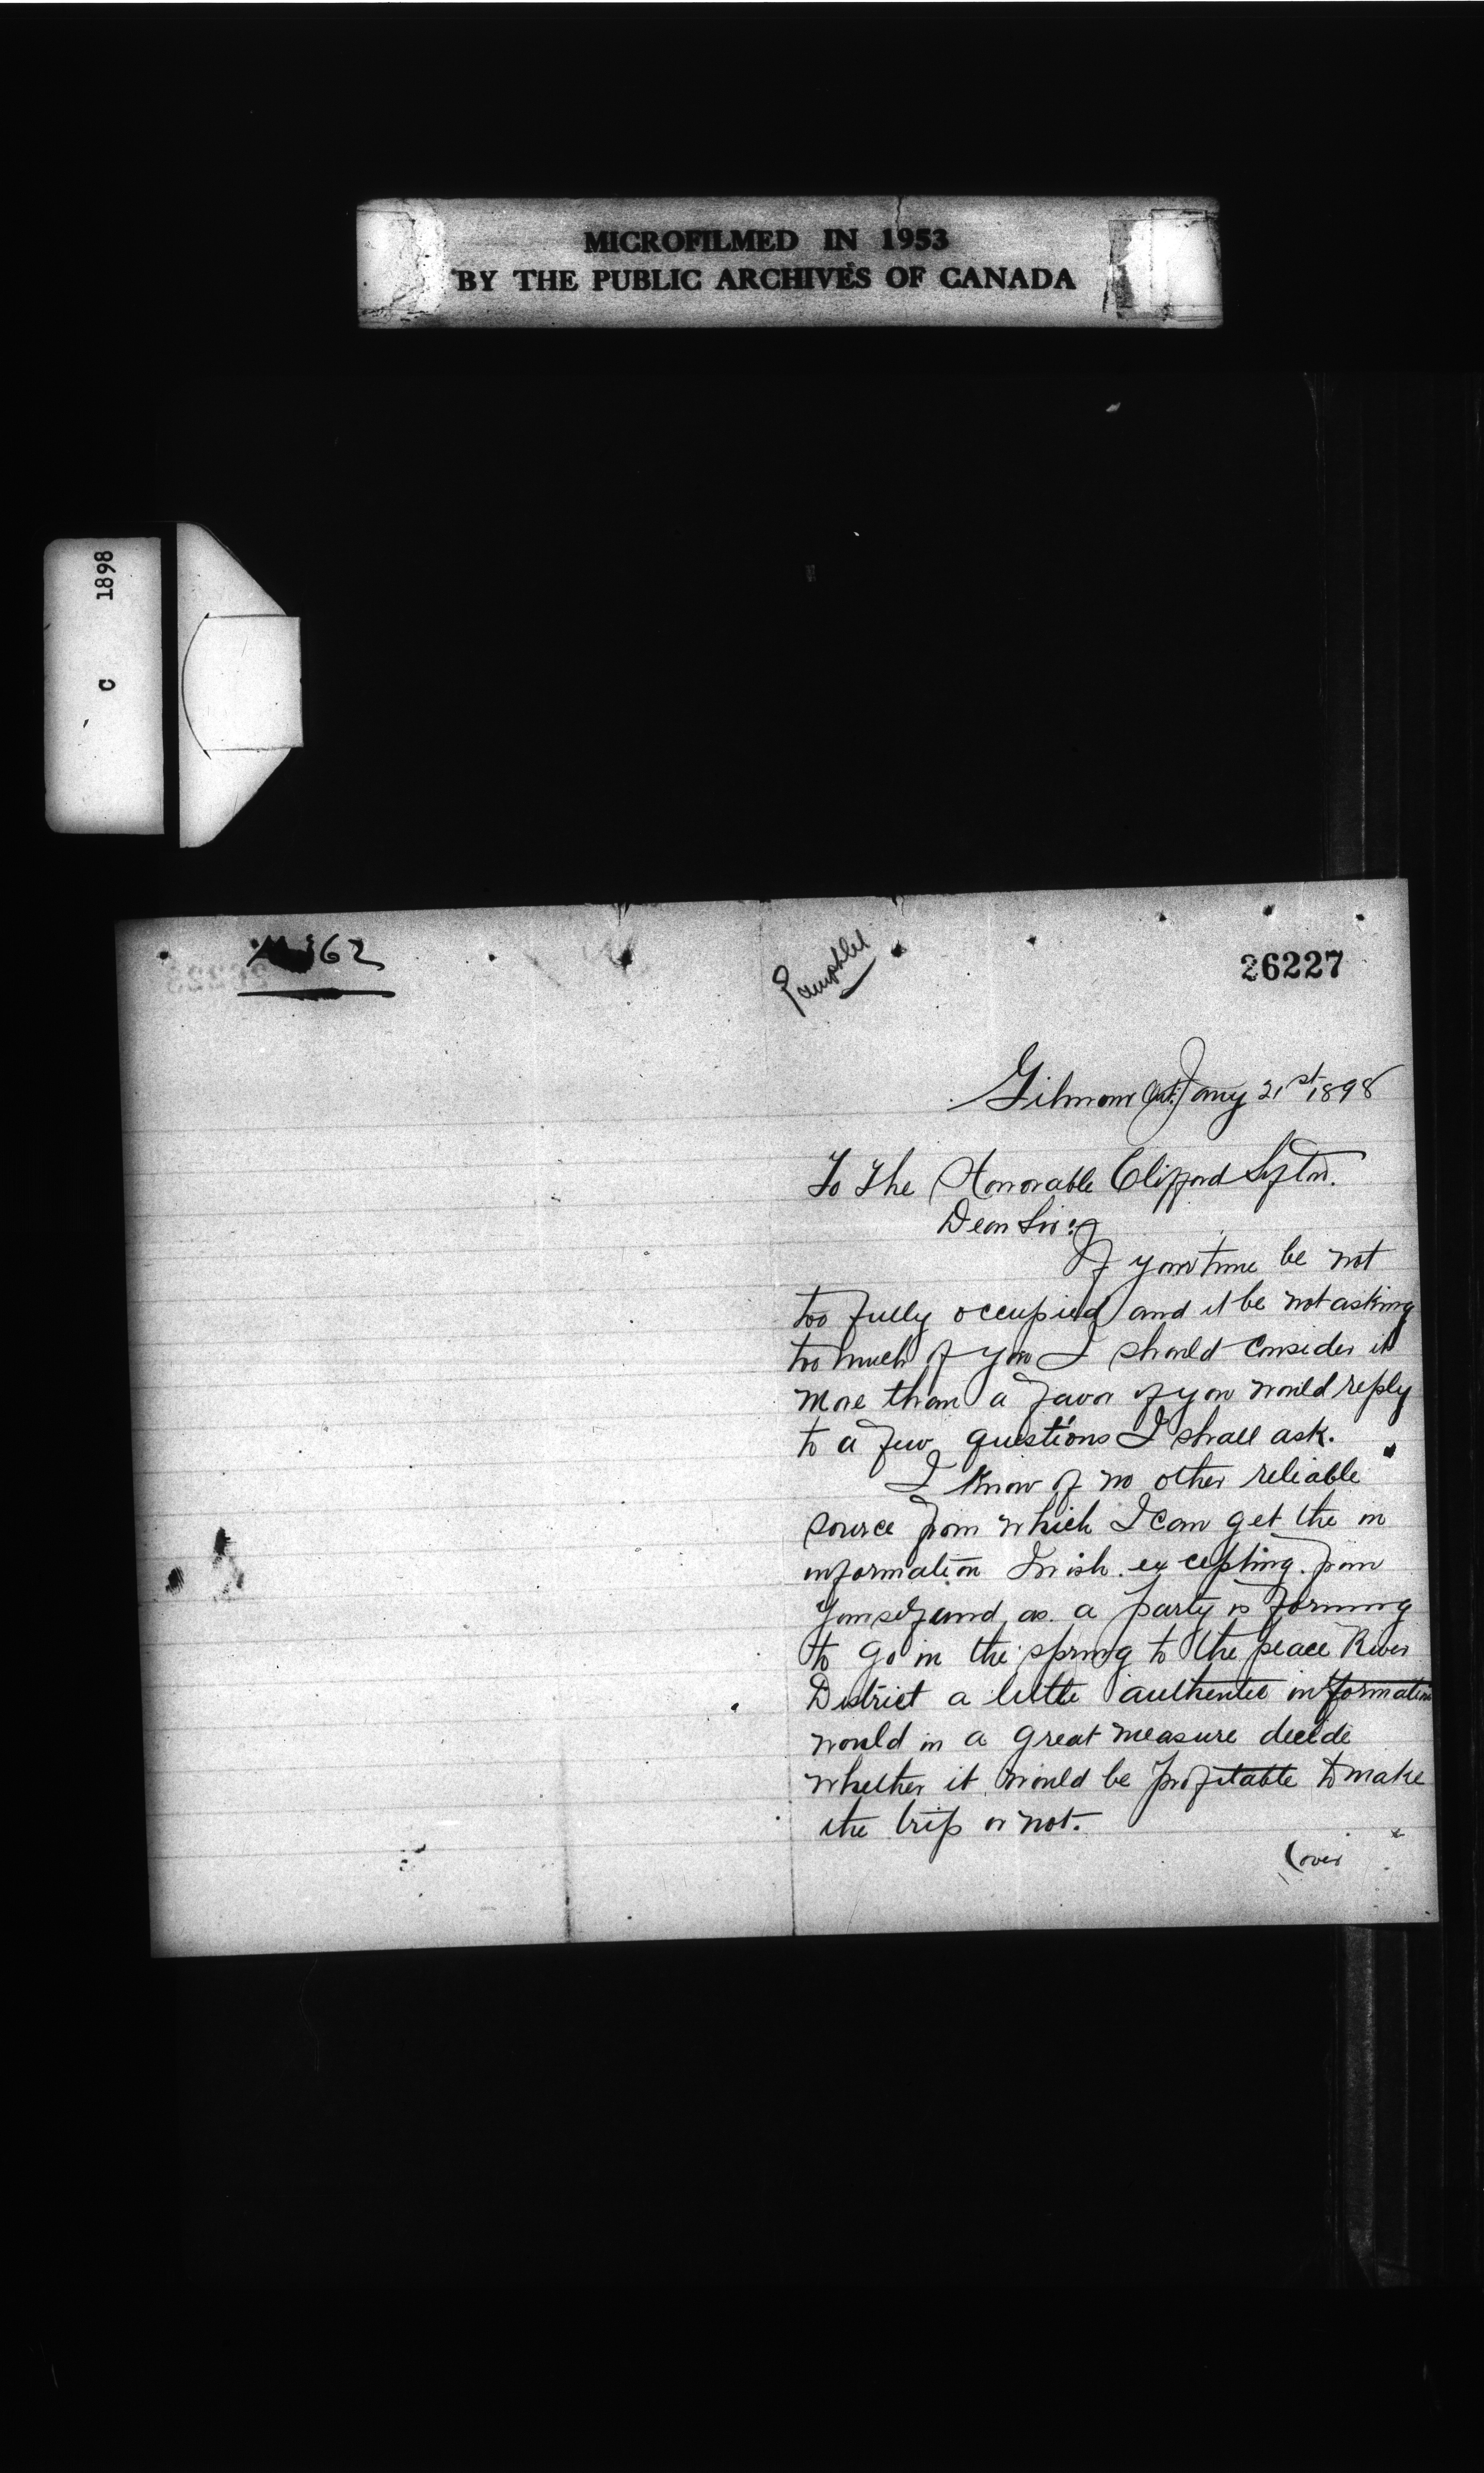 MICROFILMED IN 1953
BY THE PUBLIC ARCHIVES OF CANADA
C 1898
362
Pamphlet
26227
Gilmour Ont. Jany 21st 1898
To The Honorable Clifford Sifton.
Dear Sir:
If your time be not
too fully occupied and it be not asking
too much of you I should consider it
more than a favor if you would reply
to a few questions I shall ask.
I know of no other reliable
source from which I can get the in
information I wish. excepting. from
yourself and as a party is forming
to go in the spring to the peace River
District a little authentic information
would in a great measure decide
whether it would be profitable to make
the trip or not.
(over